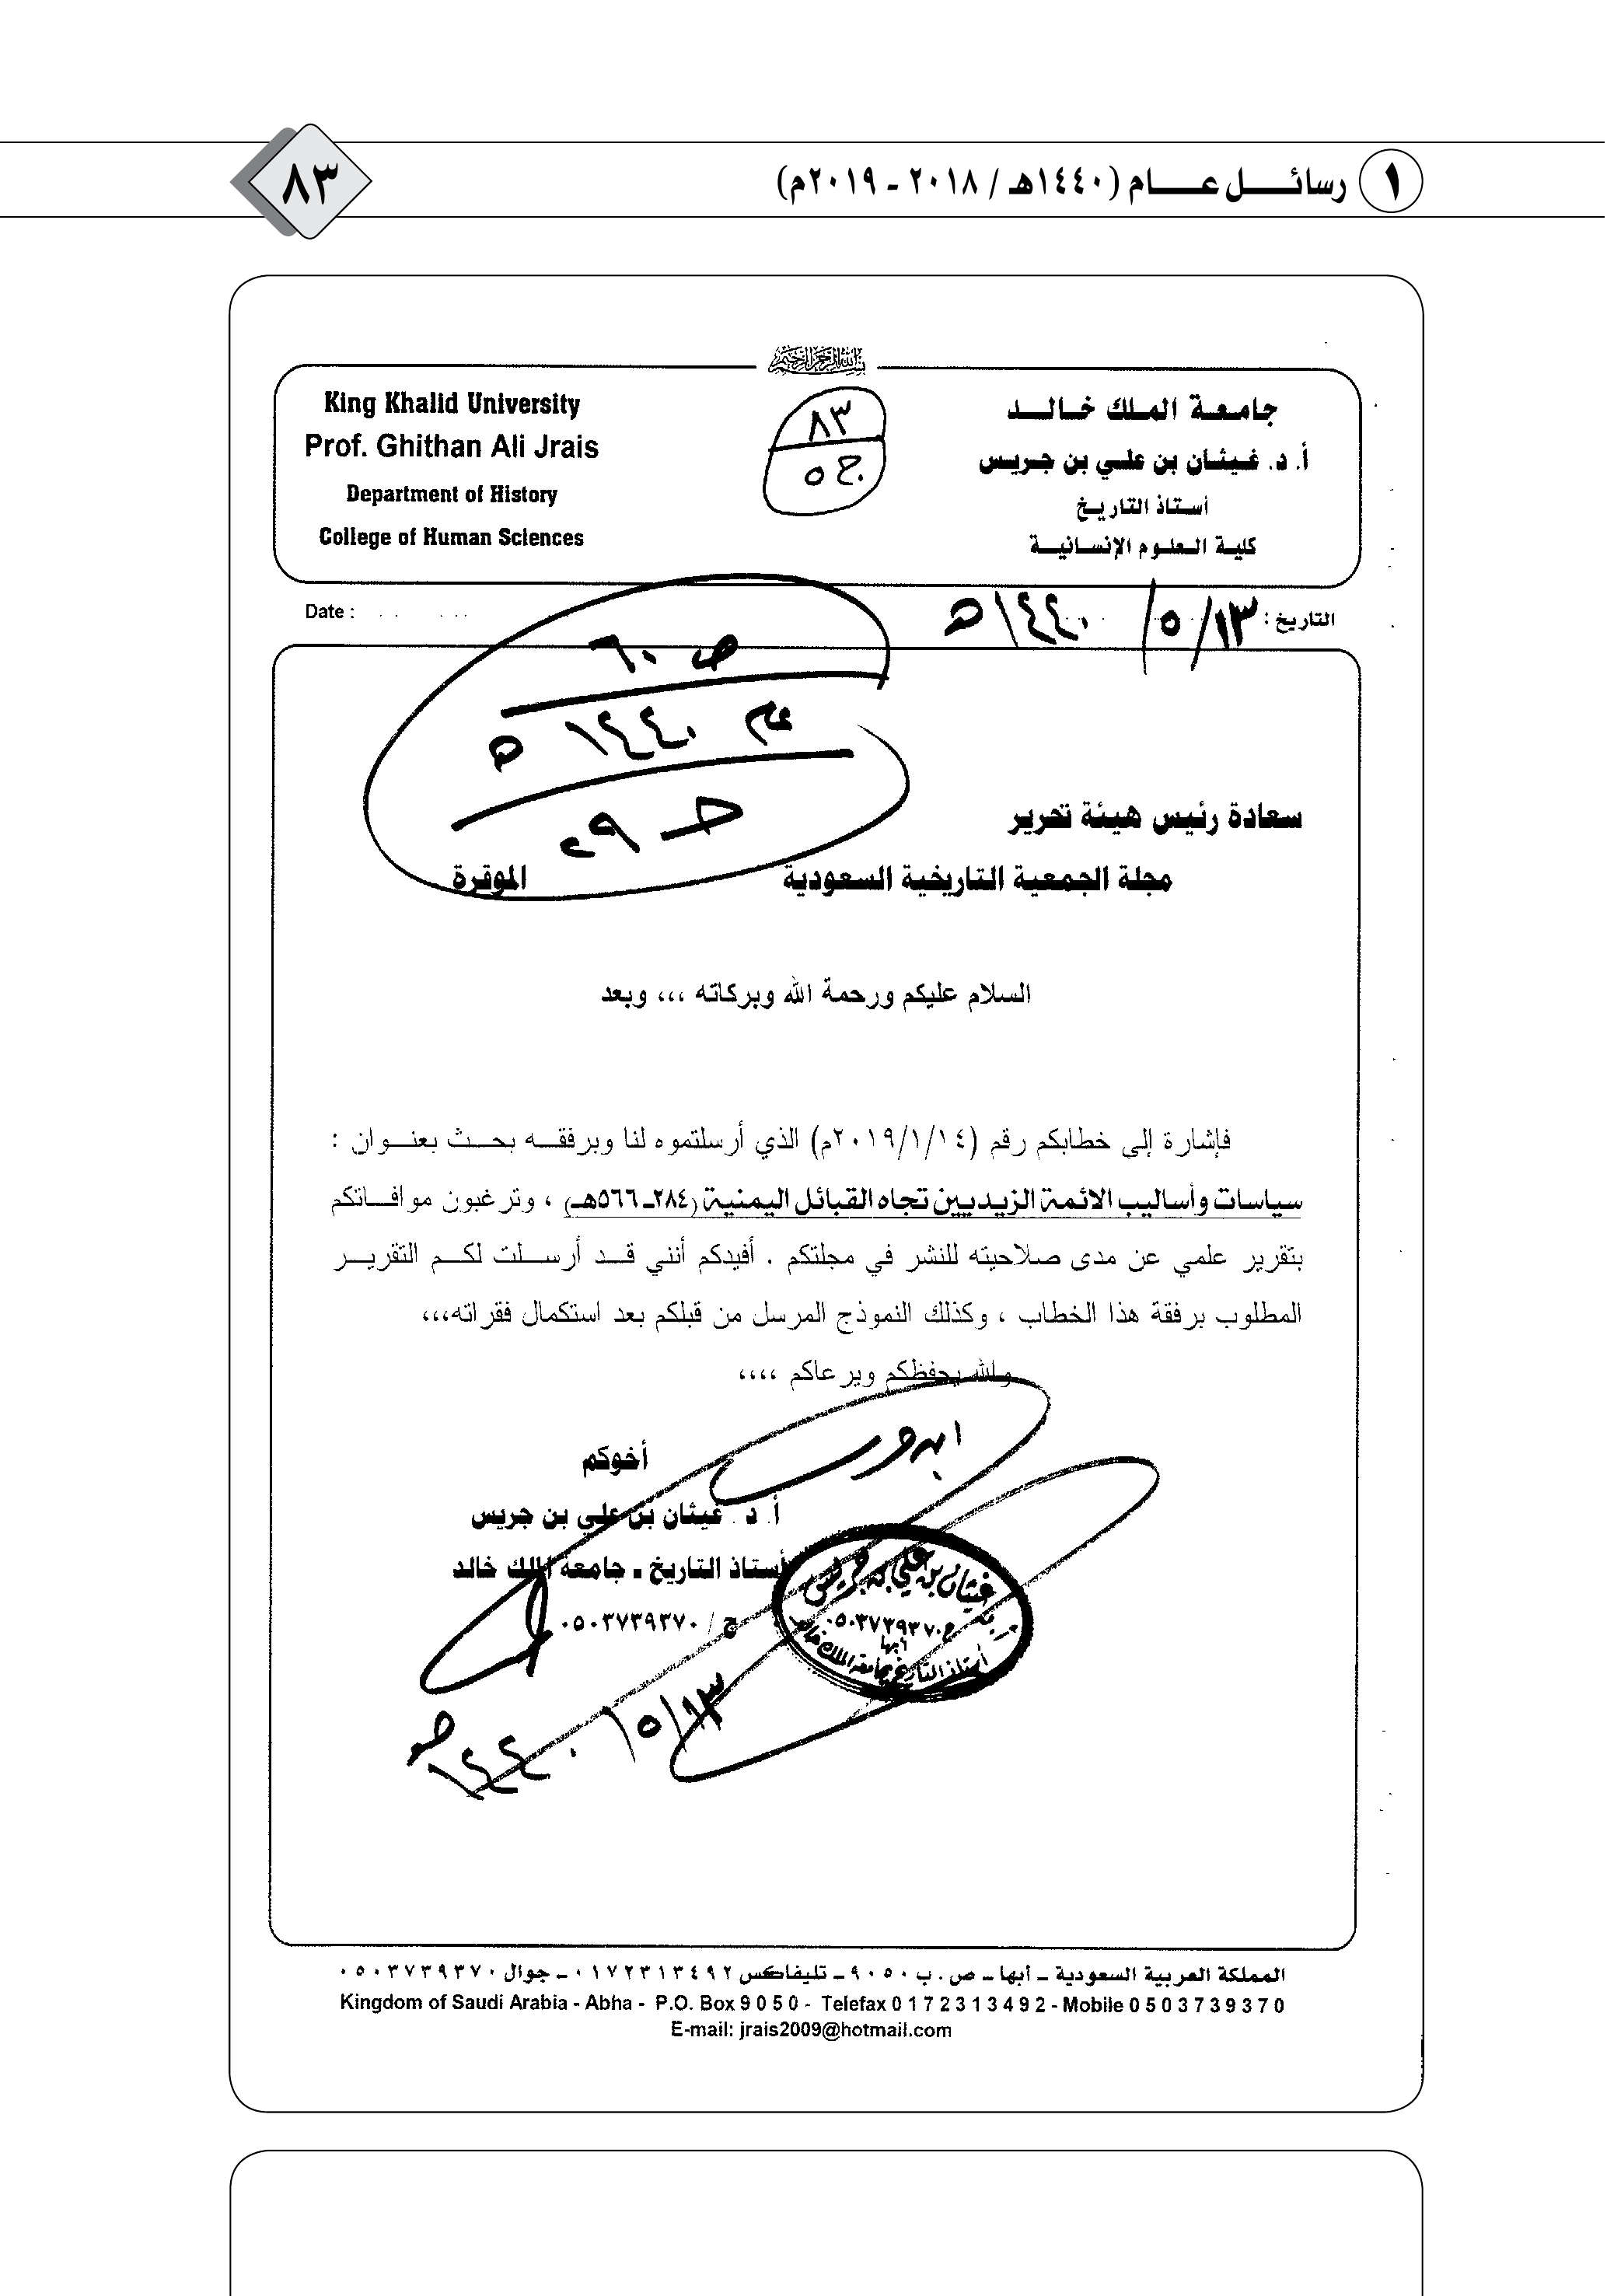 ١ رسائــــل عـــــام (١٤٤٠هـ / ٢٠١٨ - ٢٠١٩م)
٨٣
بسم الله الرحمن الرحيم
جامعة الملك خالد
أ. د. غيثان بن علي بن جريس
أستاذ التاريخ
كلية العلوم الإنسانية
٨٣
ج ٥
King Khalid University
Prof. Ghithan Ali Jrais
Department of History
College of Human Sciences
التاريخ : ١٣ / ٥ / ١٤٤٠ هـ
Date :
ص ٦٠
عام ١٤٤٠ هـ
سعادة رئيس هيئة تحرير
مجلة الجمعية التاريخية السعودية الموقرة
السلام عليكم ورحمة الله وبركاته ،،، وبعد
فإشارة إلى خطابكم رقم (٢٠١٩/١/١٤م) الذي أرسلتموه لنا وبرفقــه بحــث بعنــوان :
سياسات وأساليب الائمة الزيديين تجاه القبائل اليمنية (٢٨٤ـ ٥٦٦هـ) ، وترغبون موافــاتكم
بتقرير علمي عن مدى صلاحيته للنشر في مجلتكم . أفيدكم أنني قــد أرســلت لكــم التقريــر
المطلوب برفقة هذا الخطاب ، وكذلك النموذج المرسل من قبلكم بعد استكمال فقراته،،،
والله يحفظكم ويرعاكم ،،،،
أخوكم
أ. د . غيثان بن علي بن جريس
أستاذ التاريخ ـ جامعة الملك خالد
ج / ٠٥٠٣٧٣٩٣٧٠
ابن جريس
غيثان بن علي بن جريس
ج ٠٥٠٣٧٣٩٣٧٠
أبها
أستاذ التاريخ بجامعة الملك خالد
١٣ / ٥ / ١٤٤٠ هـ
المملكة العربية السعودية ـ أبها ـ ص . ب ٩٠٥٠ ـ تليفاكس ٠١٧٢٣١٣٤٩٢ ـ جوال ٠٥٠٣٧٣٩٣٧٠
Kingdom of Saudi Arabia - Abha - P.O. Box 9 0 5 0 - Telefax 0 1 7 2 3 1 3 4 9 2 - Mobile 0 5 0 3 7 3 9 3 7 0
E-mail: jrais2009@hotmail.com